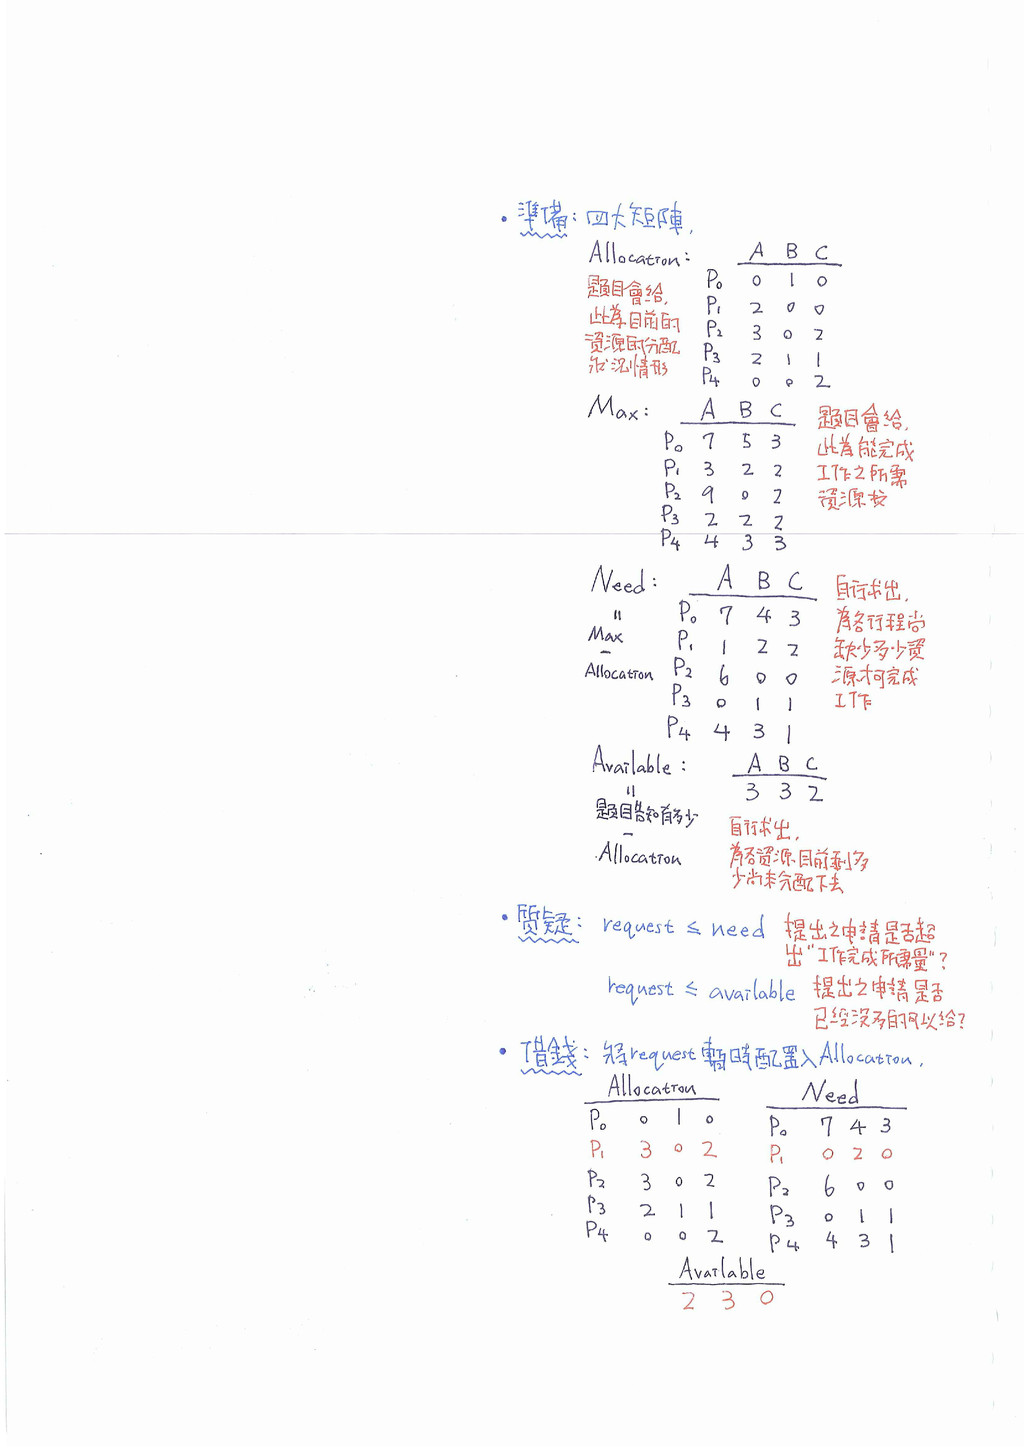 • 準備：四大矩陣.
Allocation: A B C
題目會給, P0 0 1 0
此為目前的 P1 2 0 0
資源的分配 P2 3 0 2
狀況情形 P3 2 1 1
P4 0 0 2
Max: A B C 題目會給,
P0 7 5 3 此為能完成
P1 3 2 2 工作之所需
P2 9 0 2 資源
P3 2 2 2
P4 4 3 3
Need: A B C 自行求出,
= P0 7 4 3 為各行程尚
Max P1 1 2 2 缺少多少資
- P2 6 0 0 源才可完成
Allocation P3 0 1 1 工作
P4 4 3 1
Available: A B C
= 3 3 2
題目告知有多少
- 自行求出,
Allocation 為各資源目前剩多
少尚未分配下去
• 質疑： request ≤ need 提出之申請是否超
出"工作完成所需量"?
request ≤ available 提出之申請是否
已經沒多的可以給?
• 借錢：將request暫時配置入Allocation.
Allocation Need
P0 0 1 0 P0 7 4 3
P1 3 0 2 P1 0 2 0
P2 3 0 2 P2 6 0 0
P3 2 1 1 P3 0 1 1
P4 0 0 2 P4 4 3 1
Available
2 3 0